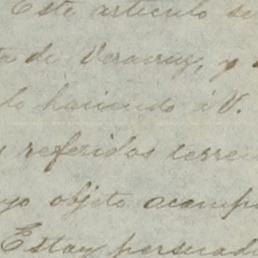 Este articulo se
ta de Veracruz, y
lo haciendo á V.
referidos terre
yo objeto acomp
Estoy persuad